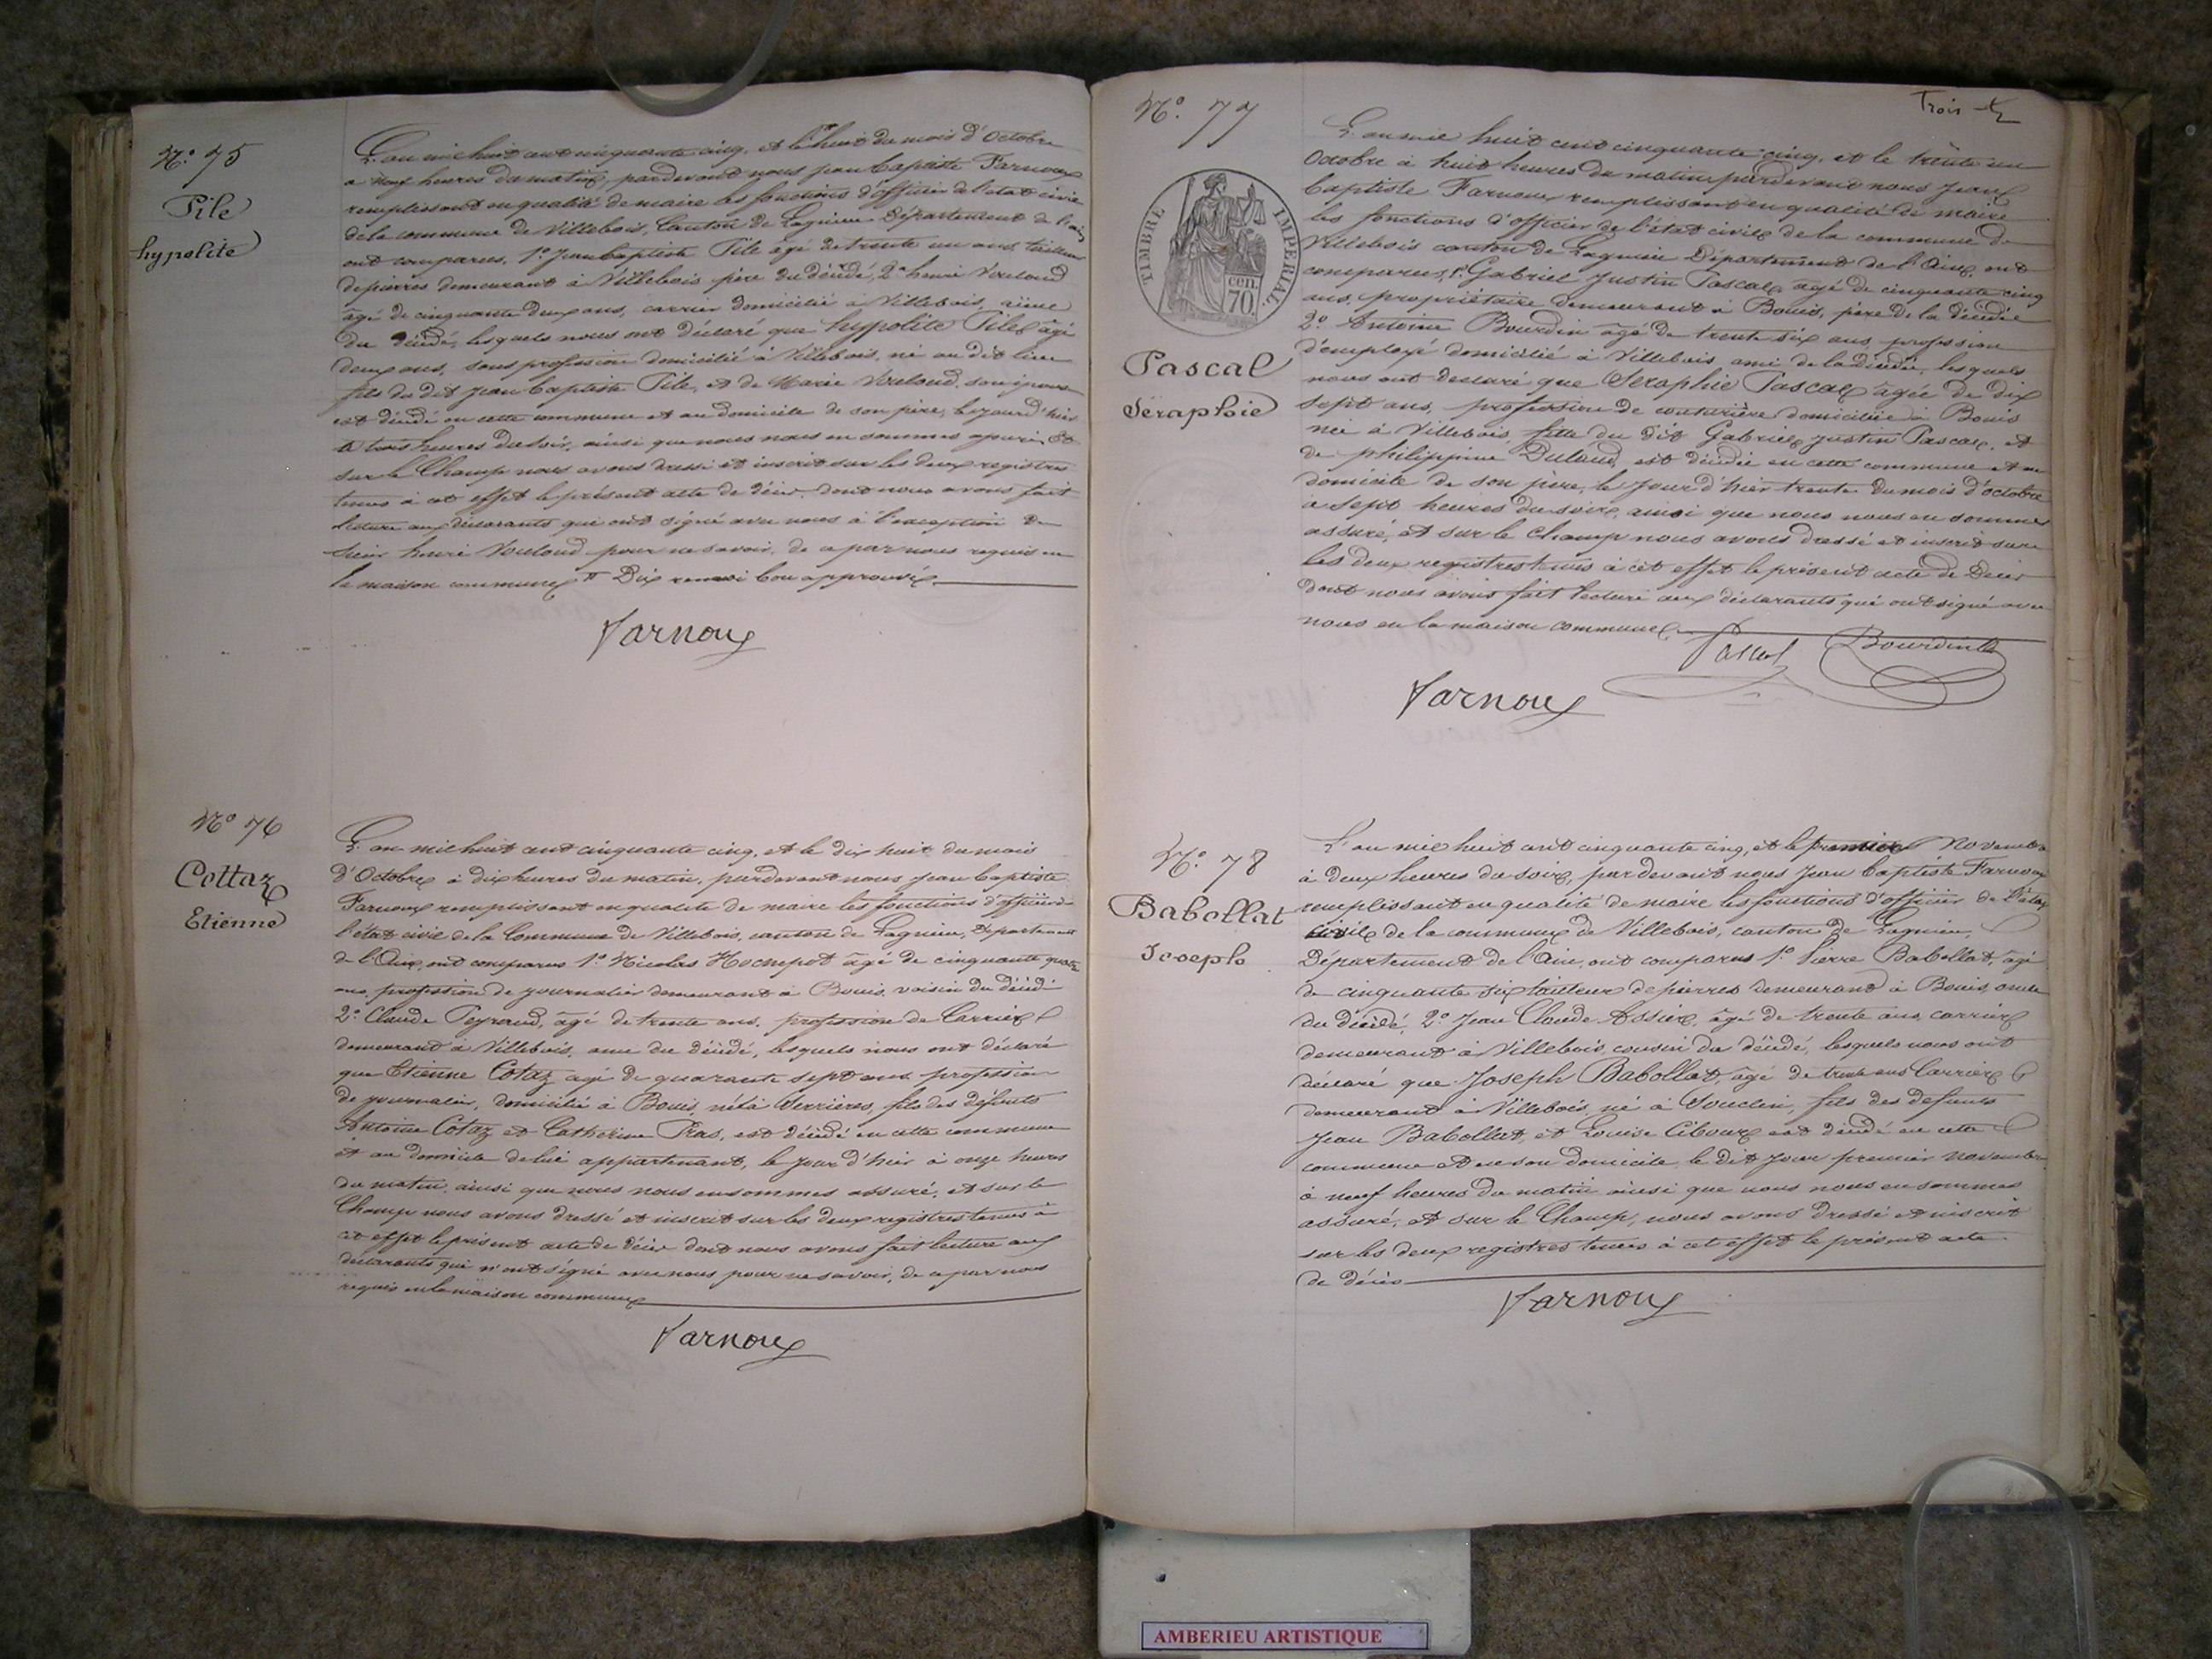 N.° 75
Pile
hypolite
L'an mil huit cent cinquante cinq, et le huit du mois d'Octobre
a neuf heures du matin, pardevant nous jean baptiste Farnoux
remplissant en qualité de maire les fonctions d'officier de l'état civil
de la commune de Villebois, Canton de Lagnieu Département de l'ain
ont comparu, 1.° Jean baptiste Pile âgé de trente un ans tailleur
de pierres demeurant à Villebois père du décédé, 2.°
âgé de cinquante deux ans, carrier domicilié à Villebois,
du décédé, lesquels nous ont déclaré que hypolite Pile âgé
deux ans, sans profession domicilié à Villebois, né au dit lieu
fils du dit jean baptiste Pile, et de Marie Vouloud, son épouse
est décédé en cette commune et au domicile de son père, le jour d'hier
à trois heures du soir, ainsi que nous nous en sommes assuré, et
sur le Champ nous avons dressé et inscrit sur les deux registres
tenus à cet effet le présent acte de décès, dont nous avons fait
lecture aux déclarants qui ont signé avec nous à l'exception de
henri Vouloud pour ne savoir, de ce par nous requis en
la maison commune Dix renvoi bon approuvé
Farnoux
N.° 76
Cottaz
Etienne
L'an mil huit cent cinquante cinq, et le dix huit du mois
d'Octobre à dix heures du matin, pardevant nous jean baptiste
Farnoux remplissant en qualité de maire les fonctions d'officier de
l'état civil de la Commune de Villebois, canton de Lagnieu, Département
de l'Ain, ont comparu 1.° Nicolas Hochepot âgé de cinquante quatre
ans, profession de journalier demeurant à Bouis, voisin du décédé
2.° Claude Peyraud, âgé de trente ans, profession de Carrier
demeurant à Villebois, ami du décédé, lesquels nous ont déclaré
que Etienne Cotaz âgé de quarante sept ans profession
de journalier, domicilié à Bouis, né à Serrières, fils des défunts
Antoine Cotaz et Catherine Pras, est décédé en cette commune
et au domicile de lui appartenant, le jour d'hier à onze heures
du matin, ainsi que nous nous en sommes assuré, et sur le
Champ nous avons dressé et inscrit sur les deux registres tenus à
cet effet le présent acte de décès dont nous avons fait lecture aux
déclarants qui n'ont signé avec nous pour ne savoir, de ce par nous
requis en la maison commune
Farnoux
Trois
N.° 77
TIMBRE IMPERIAL
cen.
70.
Pascal
Séraphie
L'an mil huit cent cinquante cinq, et le trente un
Octobre à huit heures du matin pardevant nous Jean
baptiste Farnoux remplissant en qualité de maire
les fonctions d'officier de l'état civil de la commune de
Villebois canton de Lagnieu Département de l'Ain, ont
comparu, 1.° Gabriel Justin Pascal âgé de cinquante cinq
ans, propriétaire demeurant à Bouis, père de la décédée
2.° Antoine Bourdin âgé de trente six ans, profession
d'employé domicilié à Villebois ami de la décédée, lesquels
nous ont déclaré que Séraphie Pascal âgée de dix
sept ans, profession de couturière domiciliée à Bouis
née à Villebois, fille du dit Gabriel justin Pascal, et
de philippine Duland, est décédée en cette commune et au
domicile de son père, le jour d'hier trente du mois d'octobre
à sept heures du soir, ainsi que nous nous en sommes
assuré, et sur le champ nous avons dressé et inscrit sur
les deux registres tenus à cet effet le présent acte de Décès
dont nous avons fait lecture aux déclarants qui ont signé avec
nous en la maison commune
Pascal Bourdin
Farnoux
N.° 78
Babollat
Joseph
L'an mil huit cent cinquante cinq, et le premier Novembre
à deux heures du soir, pardevant nous Jean baptiste Farnoux
remplissant en qualité de maire les fonctions d'officier de l'état
civil de la commune de Villebois, canton de Lagnieu,
Département de l'Ain, ont comparu 1.° Pierre Babollat, âgé
de cinquante six tailleur de pierres demeurant à Bouis, oncle
du décédé, 2.° Jean Claude Assier, âgé de trente ans carrier
demeurant à Villebois, cousin du décédé, lesquels nous ont
déclaré que Joseph Babollat, âgé de trente ans Carrier
demeurant à Villebois, né à Souclin, fils des defunts
Jean Babollat, et Louise Cibour est décédé en cette
commune et en son domicile, le dit jour premier novembre
à neuf heures du matin ainsi que nous nous en sommes
assuré, et sur le Champ, nous avons dressé et inscrit
sur les deux registres tenus à cet effet le présent acte
de décès
Farnoux
AMBERIEU ARTISTIQUE